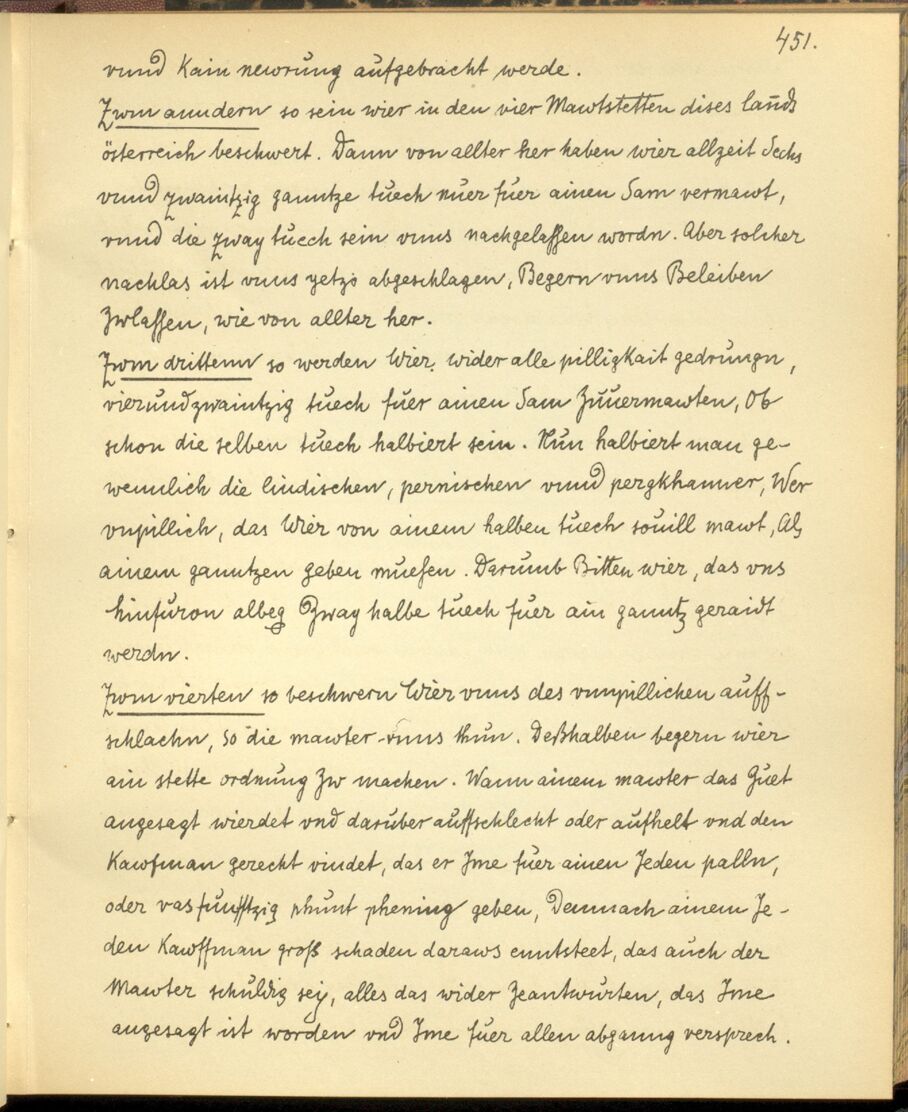 451.
vnnd Kain newrung aufgebracht werde.
Zwm anndern so sein wier in den vier Mawtstetten dises lannds
österreich beschwert. Dann von allter her haben wier allzeit Sechs
vnnd zwaintzig ganntze tuech nuer fuer ainen Sam vermawt,
vnnd die zway tuech sein vnns nachgelassen wordn. Aber solcher
nachlas ist vnns yetzo abgeschlagen, Begern vnns Beleiben
Zwlassen, wie von allter her.
Zwm drittenn so werden Wier wider alle pilligkait gedrungn,
vierundzwaintzig tuech fuer ainen Sam Zuuermawten, Ob
schon die selben tuech halbiert sein. Nun halbiert man ge-
wennlich die lindischen, pernischen vnnd pergkhamer, Wer
vnpillich, das Wier von ainem halben tuech souill mawt, Als
ainem ganntzen geben muesen. Darumb Bitten wier, das vns
hinfuron albeg Zway halbe tuech fuer ain ganntz geraidt
werdn.
Zwm vierten so beschwern Wier vnns des vnnpillichen auff-
schlachn, So die mawter vnns thun. Deßhalben begern wier
ain stette ordnung Zw machen. Wann ainem mawter das Guet
angesagt wierdet vnd darüber auffschlecht oder aufhelt vnd den
Kawfman gerecht vindet, das er Jme fuer ainen Jeden palln,
oder vas funfftzig phunt phening geben, Demnach ainem Je-
den Kawffman groß schaden daraws enntsteet, das auch der
Mawter schuldig sey, alles das wider Zeantwurten, das Jme
angesagt ist worden vnd Jme fuer allen abganng versprech.